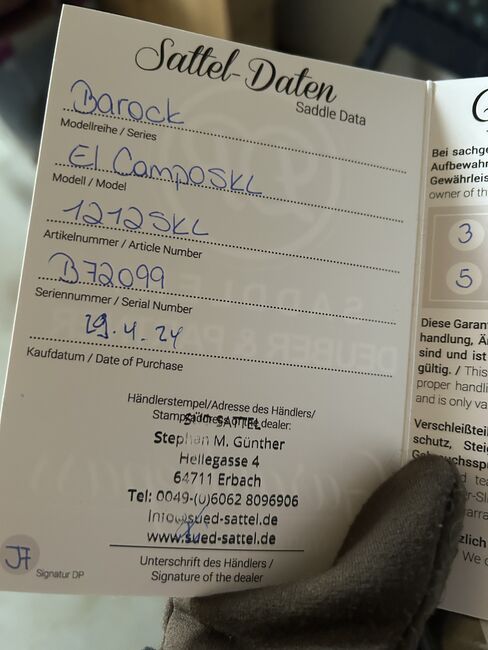 Sattel-Daten
Saddle Data
Barock
Modellreihe / Series
El CampoSKL
Modell / Model
1212SKL
Artikelnummer / Article Number
B72099
Seriennummer / Serial Number
29.4.24
Kaufdatum / Date of Purchase
Händlerstempel/Adresse des Händlers/
Stamp/address of the dealer:
SATTEL
Stephan M. Günther
Hellegasse 4
64711 Erbach
Tel: 0049-(0)6062 8096906
Info@sued-sattel.de
www.sued-sattel.de
Unterschrift des Händlers /
Signature of the dealer
JF
Signatur DP
SADDLE
DEUBER & PA
Bei sachge
Aufbewahr
Gewährleis
owner of th
3
5
Diese Garant
handlung, Ä
sind und ist
gültig. / This
proper handli
and is only va
Verschleißteil
schutz, Steig